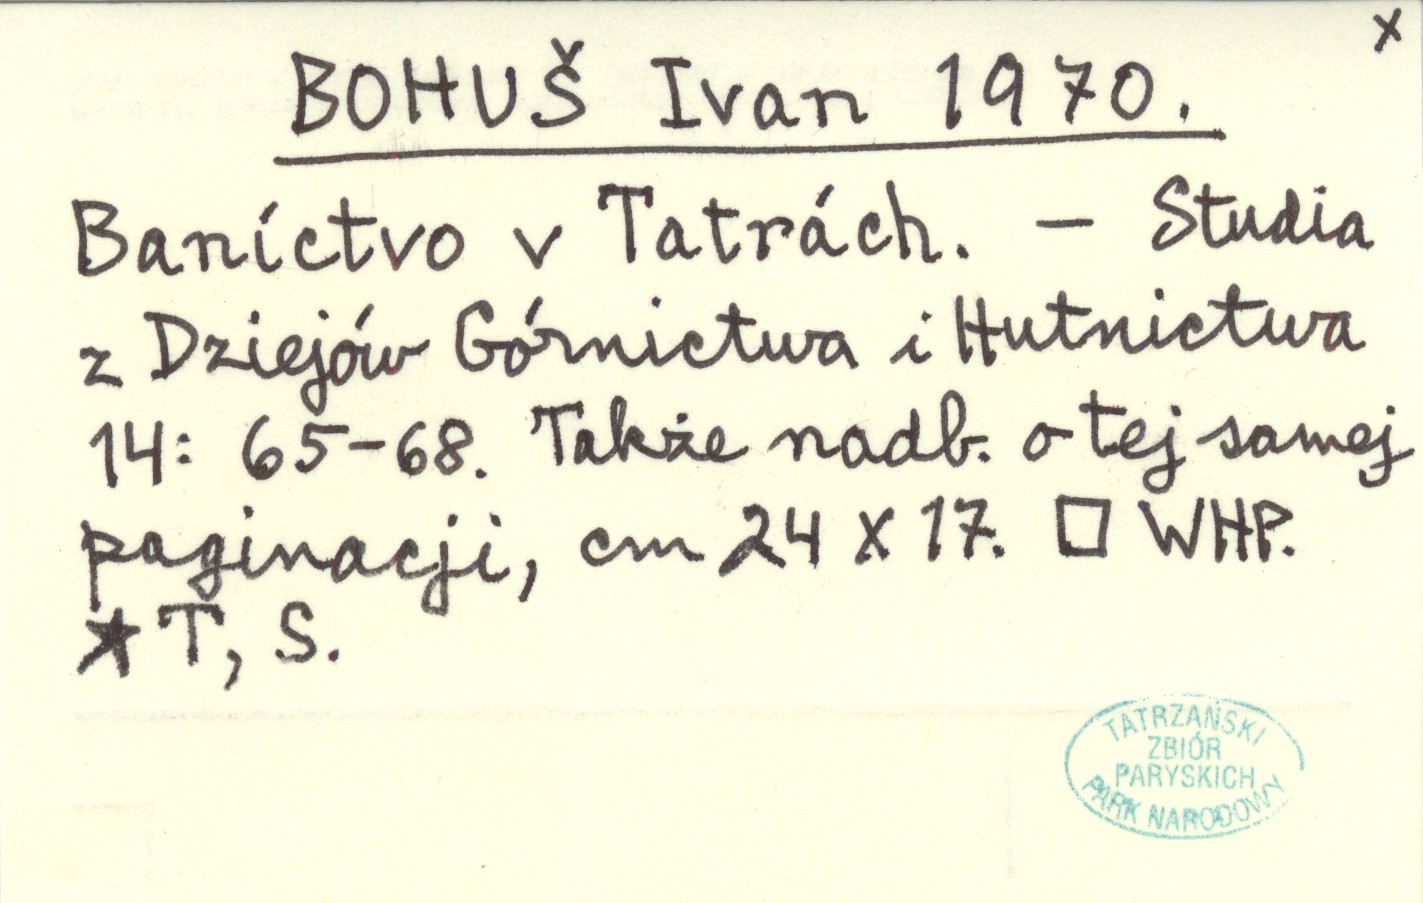 x
BOHUŠ Ivan 1970.
Baníctvo v Tatrách. – Studia
z Dziejów Górnictwa i Hutnictwa
14: 65-68. Także nadb. o tej samej
paginacji, cm 24 x 17. □ WHP.
★ T, S.
TATRZAŃSKI
ZBIÓR
PARYSKICH
PARK NARODOWY